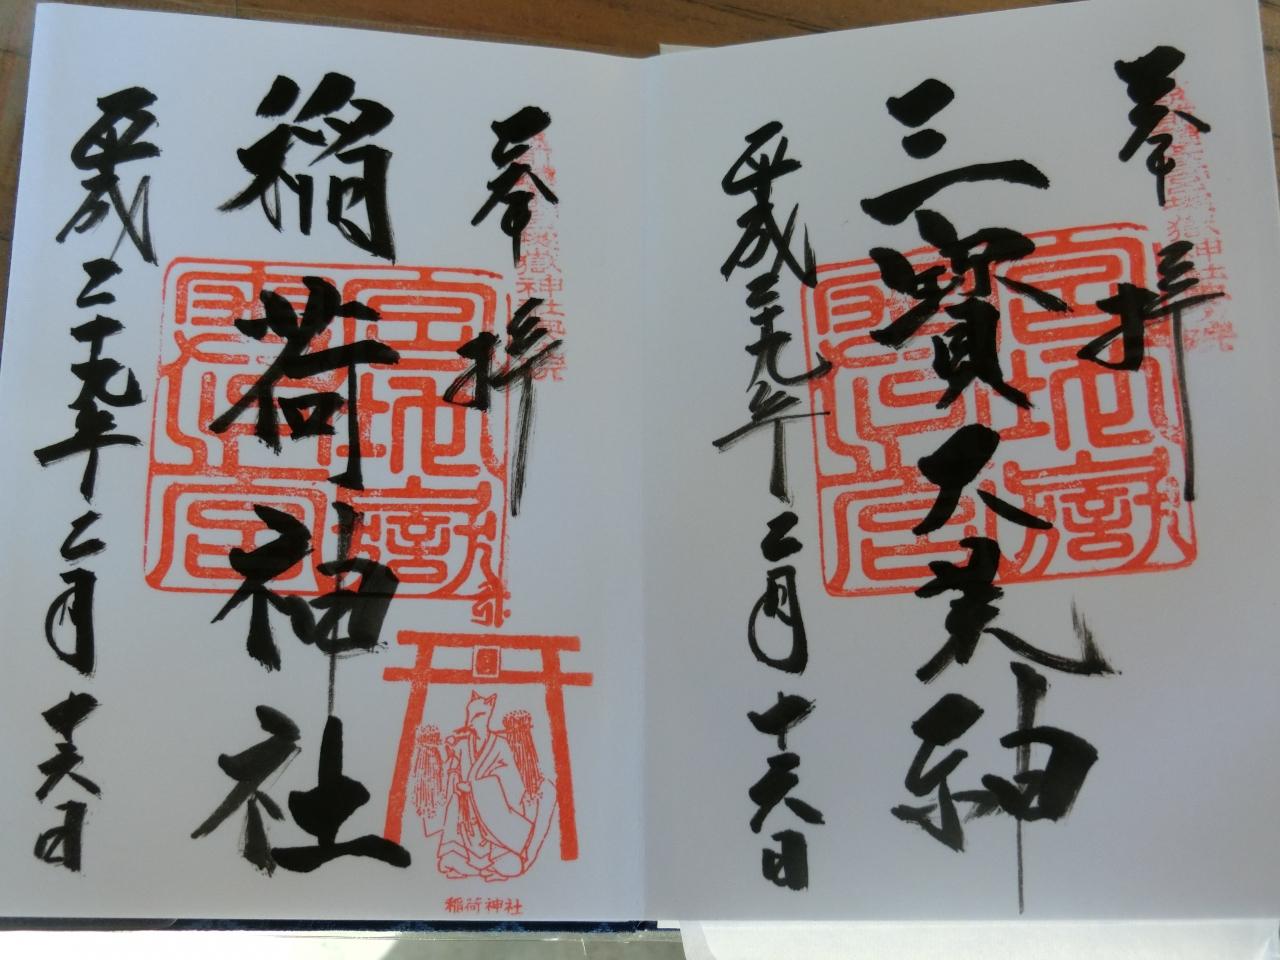 奉拝
三寳大荒神
平成二十九年二月十六日
奉拝
稲荷神社
平成二十九年二月十六日
稲荷神社